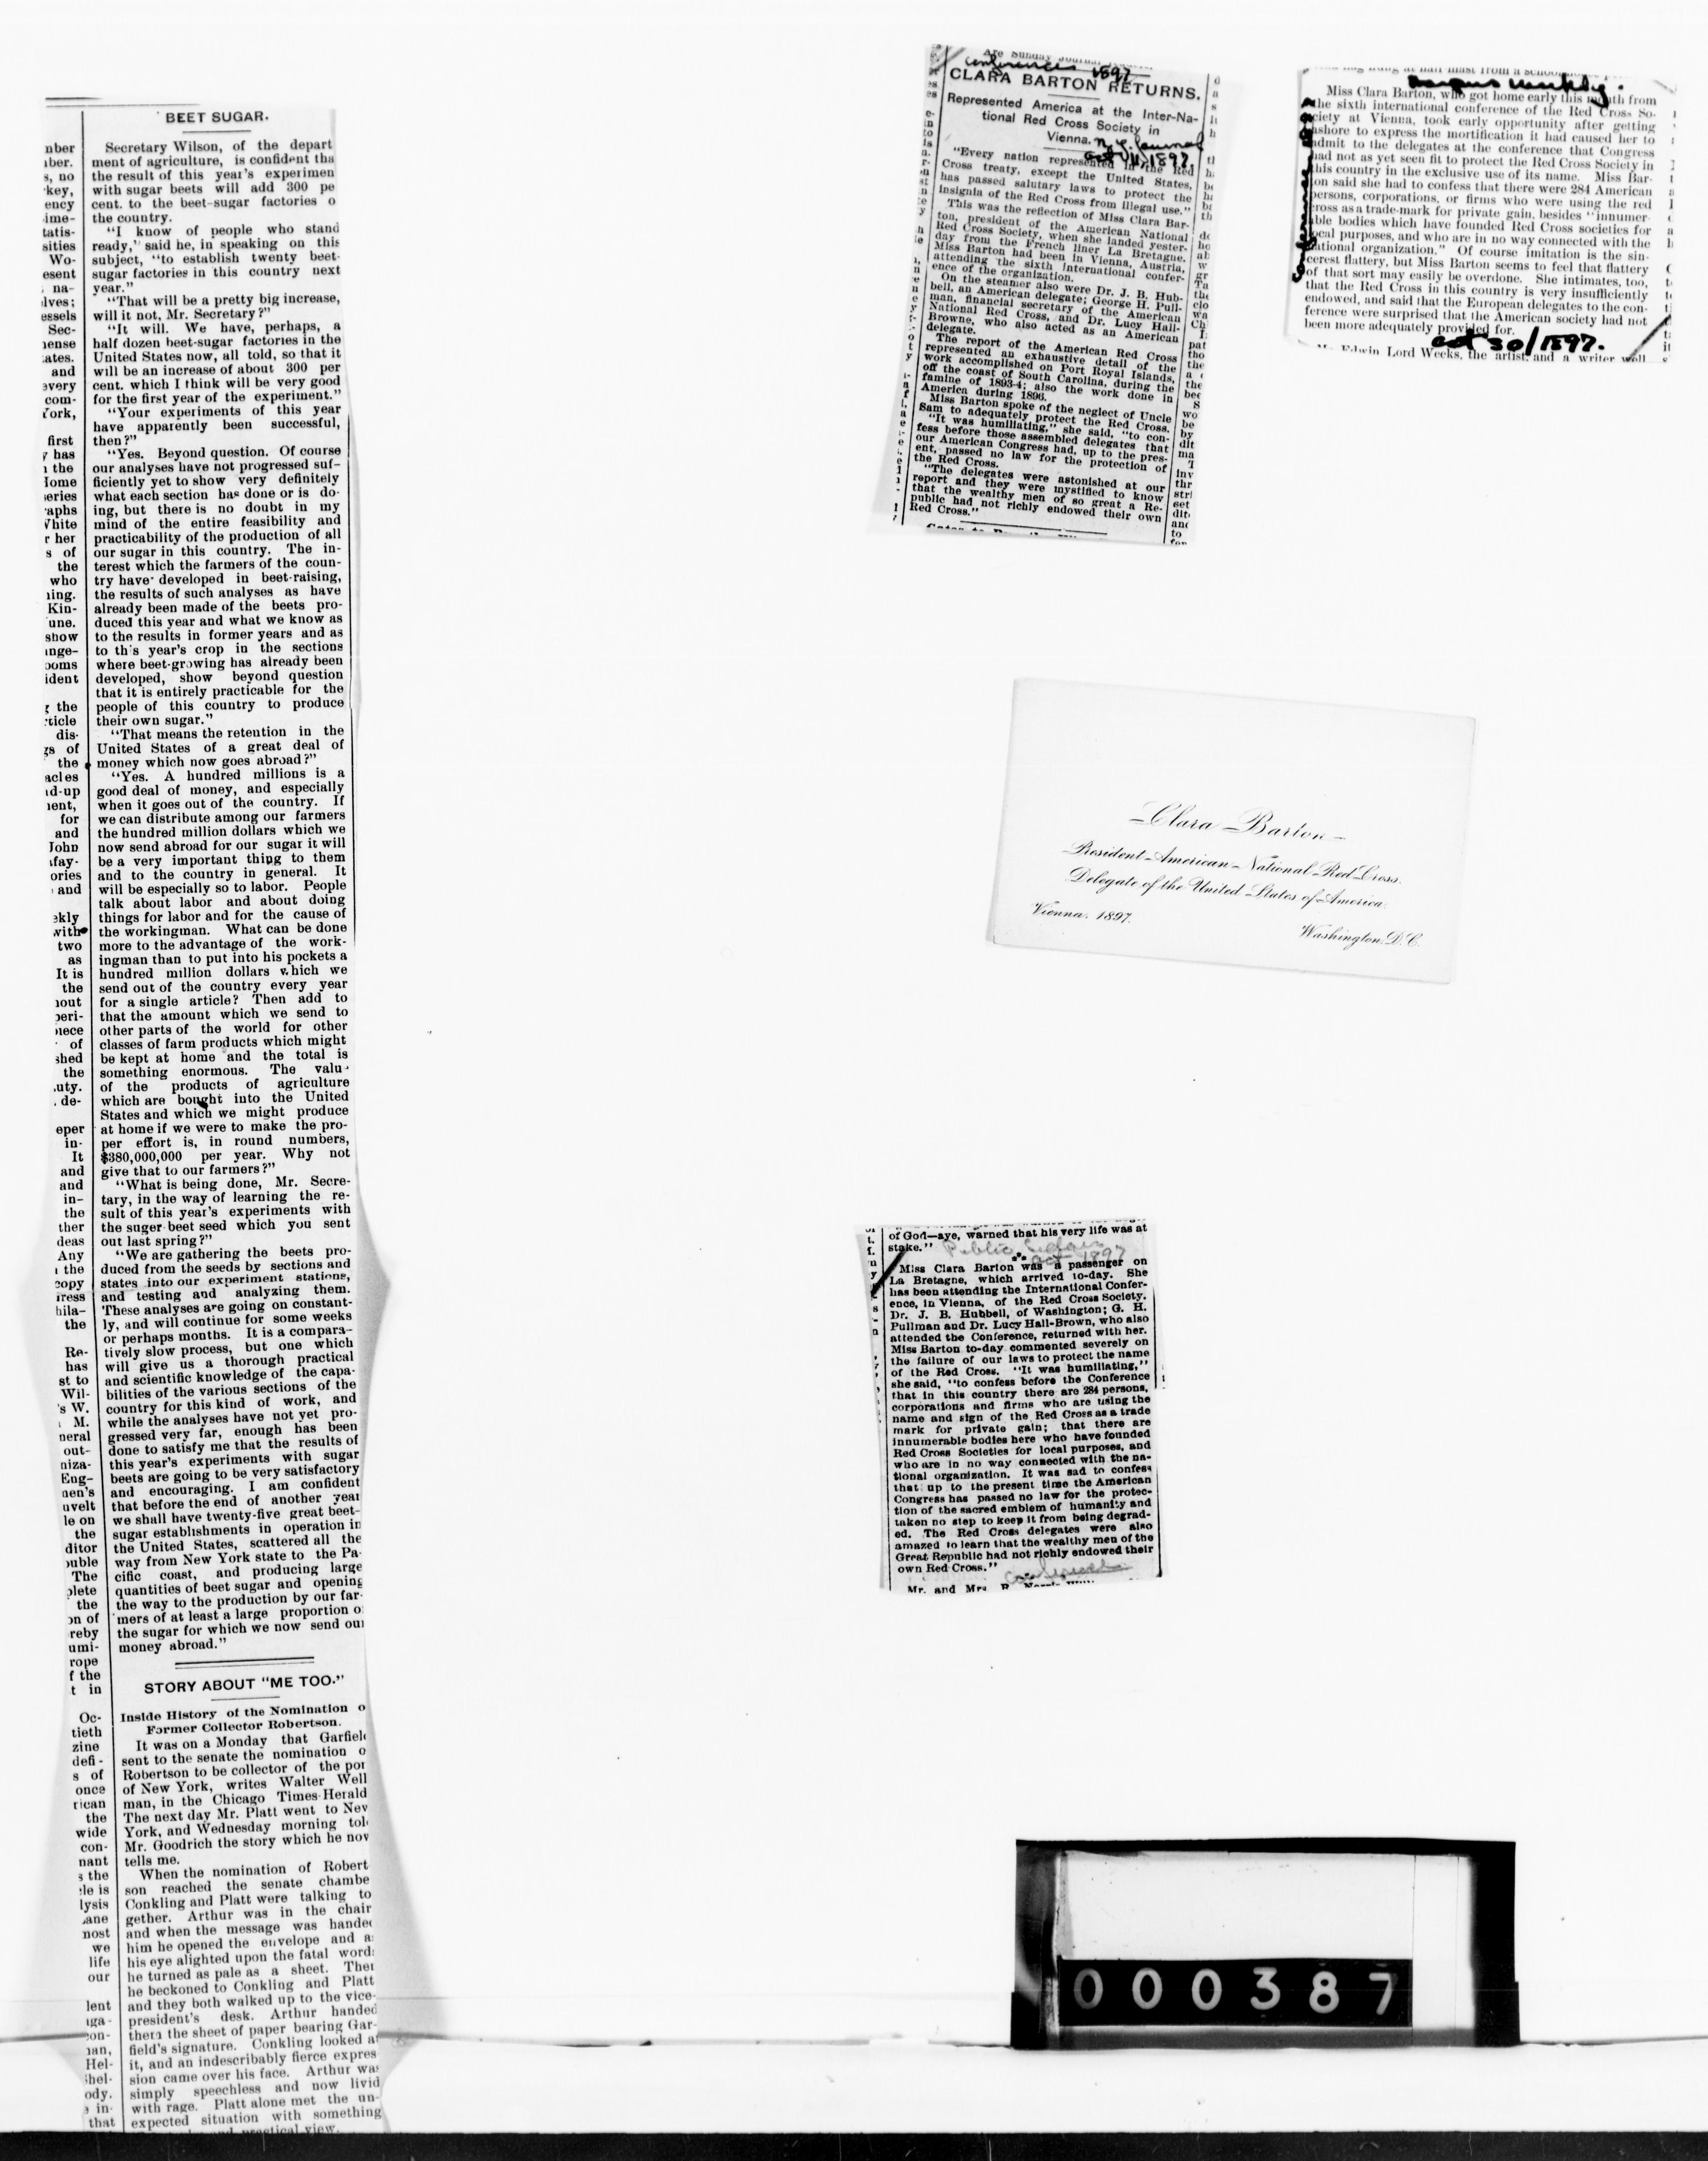 BEET SUGAR.
Secretary Wilson, of the depart
ment of agriculture, is confident tha
the result of this year's experimen
with sugar beets will add 300 pe
cent. to the beet-sugar factories o
the country.
"I know of people who stand
ready," said he, in speaking on this
subject, "to establish twenty beet-
sugar factories in this country next
year."
"That will be a pretty big increase,
will it not, Mr. Secretary?"
"It will. We have, perhaps, a
half dozen beet-sugar factories in the
United States now, all told, so that it
will be an increase of about 300 per
cent. which I think will be very good
for the first year of the experiment."
"Your experiments of this year
have apparently been successful,
then?"
"Yes. Beyond question. Of course
our analyses have not progressed suf-
ficiently yet to show very definitely
what each section has done or is do-
ing, but there is no doubt in my
mind of the entire feasibility and
practicability of the production of all
our sugar in this country. The in-
terest which the farmers of the coun-
try have developed in beet-raising,
the results of such analyses as have
already been made of the beets pro-
duced this year and what we know as
to the results in former years and as
to this year's crop in the sections
where beet-growing has already been
developed, show beyond question
that it is entirely practicable for the
people of this country to produce
their own sugar."
"That means the retention in the
United States of a great deal of
money which now goes abroad?"
"Yes. A hundred millions is a
good deal of money, and especially
when it goes out of the country. If
we can distribute among our farmers
the hundred million dollars which we
now send abroad for our sugar it will
be a very important thing to them
and to the country in general. It
will be especially so to labor. People
talk about labor and about doing
things for labor and for the cause of
the workingman. What can be done
more to the advantage of the work-
ingman than to put into his pockets a
hundred million dollars which we
send out of the country every year
for a single article? Then add to
that the amount which we send to
other parts of the world for other
classes of farm products which might
be kept at home and the total is
something enormous. The valu
of the products of agriculture
which are bought into the United
States and which we might produce
at home if we were to make the pro-
per effort is, in round numbers,
$380,000,000 per year. Why not
give that to our farmers?"
"What is being done, Mr. Secre-
tary, in the way of learning the re-
sult of this year's experiments with
the suger-beet seed which you sent
out last spring?"
"We are gathering the beets pro-
duced from the seeds by sections and
states into our experiment stations,
and testing and analyzing them.
These analyses are going on constant-
ly, and will continue for some weeks
or perhaps months. It is a compara-
tively slow process, but one which
will give us a thorough practical
and scientific knowledge of the capa-
bilities of the various sections of the
country for this kind of work, and
while the analyses have not yet pro-
gressed very far, enough has been
done to satisfy me that the results of
this year's experiments with sugar
beets are going to be very satisfactory
and encouraging. I am confident
that before the end of another year
we shall have twenty-five great beet-
sugar establishments in operation in
the United States, scattered all the
way from New York state to the Pa-
cific coast, and producing large
quantities of beet sugar and opening
the way to the production by our far-
mers of at least a large proportion o
the sugar for which we now send our
money abroad."
STORY ABOUT "ME TOO."
Inside History of the Nomination o
Former Collector Robertson.
It was on a Monday that Garfiel
sent to the senate the nomination o
Robertson to be collector of the por
of New York, writes Walter Well
man, in the Chicago Times-Herald
The next day Mr. Platt went to Nev
York, and Wednesday morning tol
Mr. Goodrich the story which he nov
tells me.
When the nomination of Robert
son reached the senate chambe
Conkling and Platt were talking to
gether. Arthur was in the chair
and when the message was handed
him he opened the envelope and a
his eye alighted upon the fatal word
he turned as pale as a sheet. Then
he beckoned to Conkling and Platt
and they both walked up to the vice-
president's desk. Arthur handed
them the sheet of paper bearing Gar-
field's signature. Conkling looked a
it, and an indescribably fierce expres
sion came over his face. Arthur was
simply speechless and now livid
with rage. Platt alone met the un-
expected situation with something
practical view.
conferences 1897
CLARA BARTON RETURNS.
Represented America at the Inter-Na-
tional Red Cross Society in
Vienna. N.Y. Journal
Oct 11, 1897.
"Every nation represented in the Red
Cross treaty, except the United States,
has passed salutary laws to protect the
insignia of the Red Cross from illegal use."
This was the reflection of Miss Clara Bar-
ton, president of the American National
Red Cross Society, when she landed yester-
day from the French liner La Bretagne.
Miss Barton had been in Vienna, Austria,
attending the sixth international confer-
ence of the organization.
On the steamer also were Dr. J. B. Hub-
bell, an American delegate; George H. Pull-
man, financial secretary of the American
National Red Cross, and Dr. Lucy Hall-
Browne, who also acted as an American
delegate.
The report of the American Red Cross
represented an exhaustive detail of the
work accomplished on Port Royal Islands,
off the coast of South Carolina, during the
famine of 1893-4; also the work done in
America during 1896.
Miss Barton spoke of the neglect of Uncle
Sam to adequately protect the Red Cross.
"It was humiliating," she said, "to con-
fess before those assembled delegates that
our American Congress had, up to the pres-
ent, passed no law for the protection of
the Red Cross.
"The delegates were astonished at our
report and they were mystified to know
that the wealthy men of so great a Re-
public had not richly endowed their own
Red Cross."
Harpers Weekly.
Miss Clara Barton, who got home early this month from
the sixth international conference of the Red Cross So-
ciety at Vienna, took early opportunity after getting
ashore to express the mortification it had caused her to
admit to the delegates at the conference that Congress
had not as yet seen fit to protect the Red Cross Society in
this country in the exclusive use of its name. Miss Bar-
ton said she had to confess that there were 284 American
persons, corporations, or firms who were using the red
cross as a trade-mark for private gain, besides "innumer-
able bodies which have founded Red Cross societies for
local purposes, and who are in no way connected with the
national organization." Of course imitation is the sin-
cerest flattery, but Miss Barton seems to feel that flattery
of that sort may easily be overdone. She intimates, too,
that the Red Cross in this country is very insufficiently
endowed, and said that the European delegates to the con-
ference were surprised that the American society had not
been more adequately provided for.
Oct 30/1897.
Mr. Edwin Lord Weeks, the artist, and a writer well
Clara Barton
President American National Red Cross.
Delegate of the United States of America
Vienna. 1897.
Washington, D.C.
of God—aye, warned that his very life was at
stake." Public Ledger
Oct 1897
Miss Clara Barton was a passenger on
La Bretagne, which arrived to-day. She
has been attending the International Confer-
ence, in Vienna, of the Red Cross Society.
Dr. J. B. Hubbell, of Washington; G. H.
Pullman and Dr. Lucy Hall-Brown, who also
attended the Conference, returned with her.
Miss Barton to-day commented severely on
the failure of our laws to protect the name
of the Red Cross. "It was humiliating,"
she said, "to confess before the Conference
that in this country there are 284 persons,
corporations and firms who are using the
name and sign of the Red Cross as a trade
mark for private gain; that there are
innumerable bodies here who have founded
Red Cross Societies for local purposes, and
who are in no way connected with the na-
tional organization. It was sad to confess
that up to the present time the American
Congress has passed no law for the protec-
tion of the sacred emblem of humanity and
taken no step to keep it from being degrad-
ed. The Red Cross delegates were also
amazed to learn that the wealthy men of the
Great Republic had not richly endowed their
own Red Cross."
Mr. and Mrs
000387